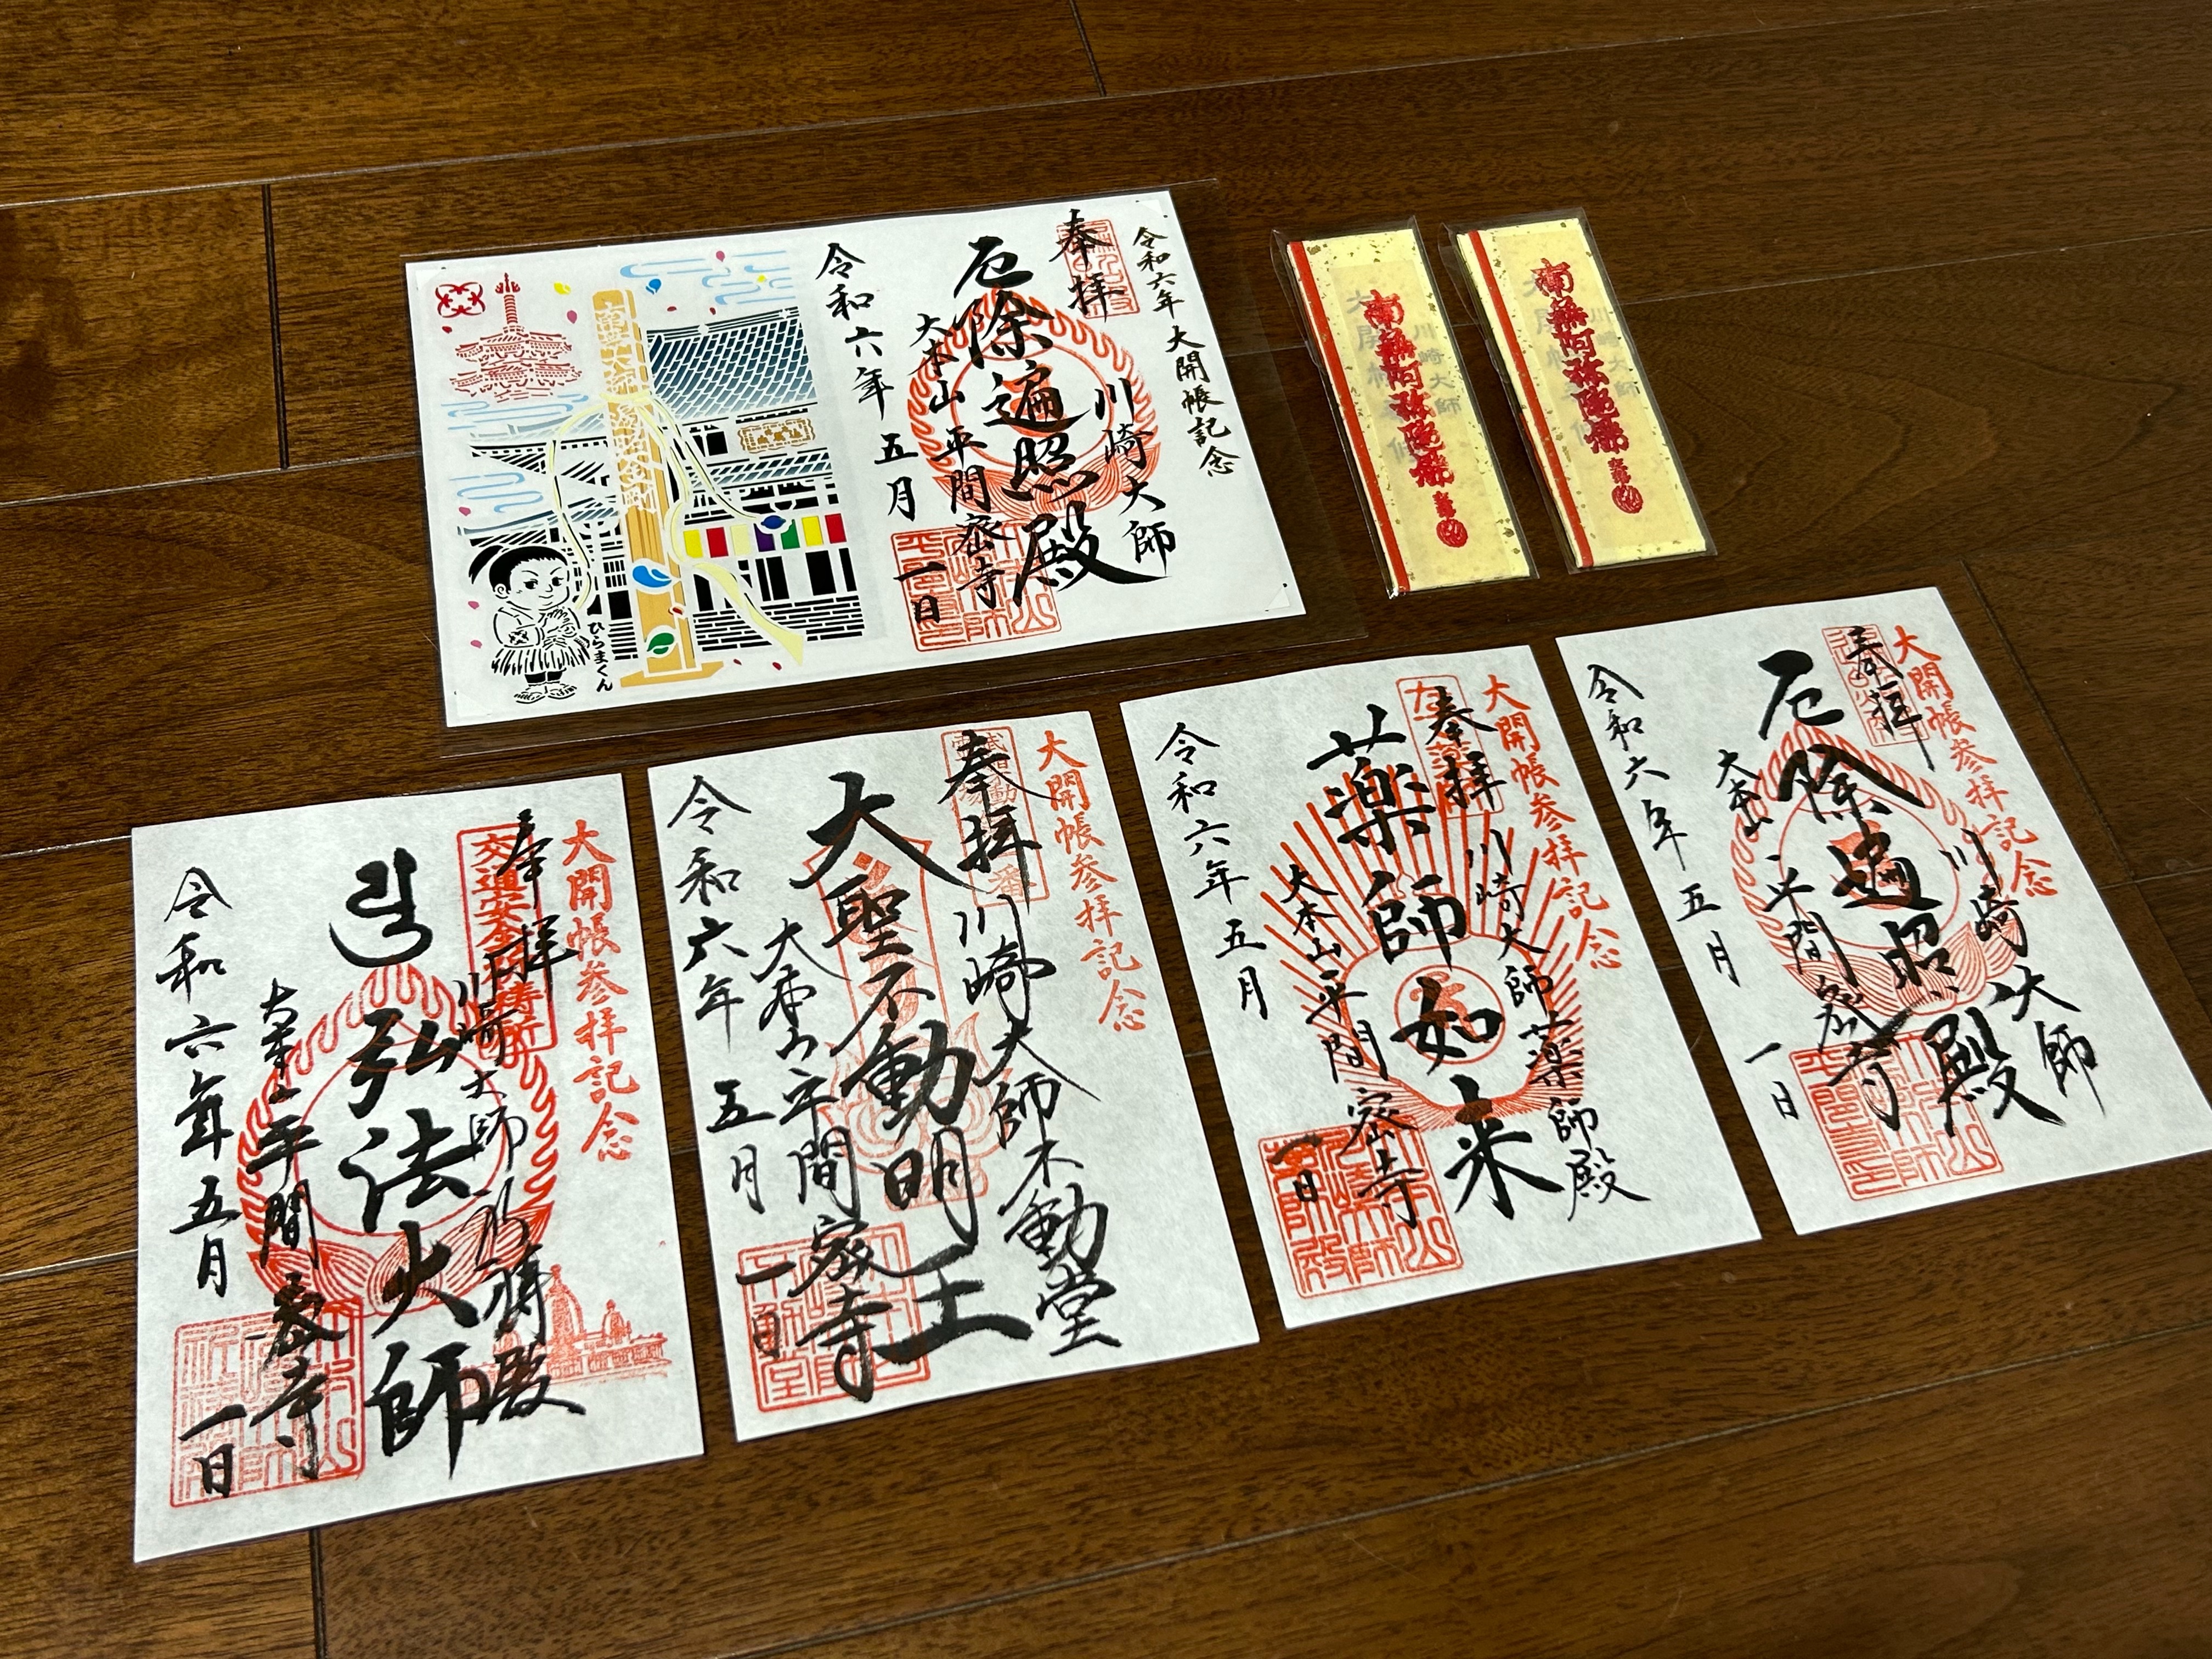 令和六年大開帳記念
奉拝
川崎大師
厄除遍照殿
大本山平間密寺
令和六年五月一日
ひらまくん
南無阿弥陀佛
川崎大師
大開帳
南無阿弥陀佛
川崎大師
大開帳
大開帳参拝記念
奉拝
川崎大師
厄除遍照殿
大本山平間密寺
令和六年五月一日
大開帳参拝記念
奉拝
川崎大師薬師殿
薬師如来
大本山平間密寺
令和六年五月一日
大開帳参拝記念
奉拝
川崎大師不動堂
大聖不動明王
大本山平間密寺
令和六年五月一日
大開帳参拝記念
奉拝
交通安全祈祷所
川崎大師祈祷殿
弘法大師
大本山平間密寺
令和六年五月一日